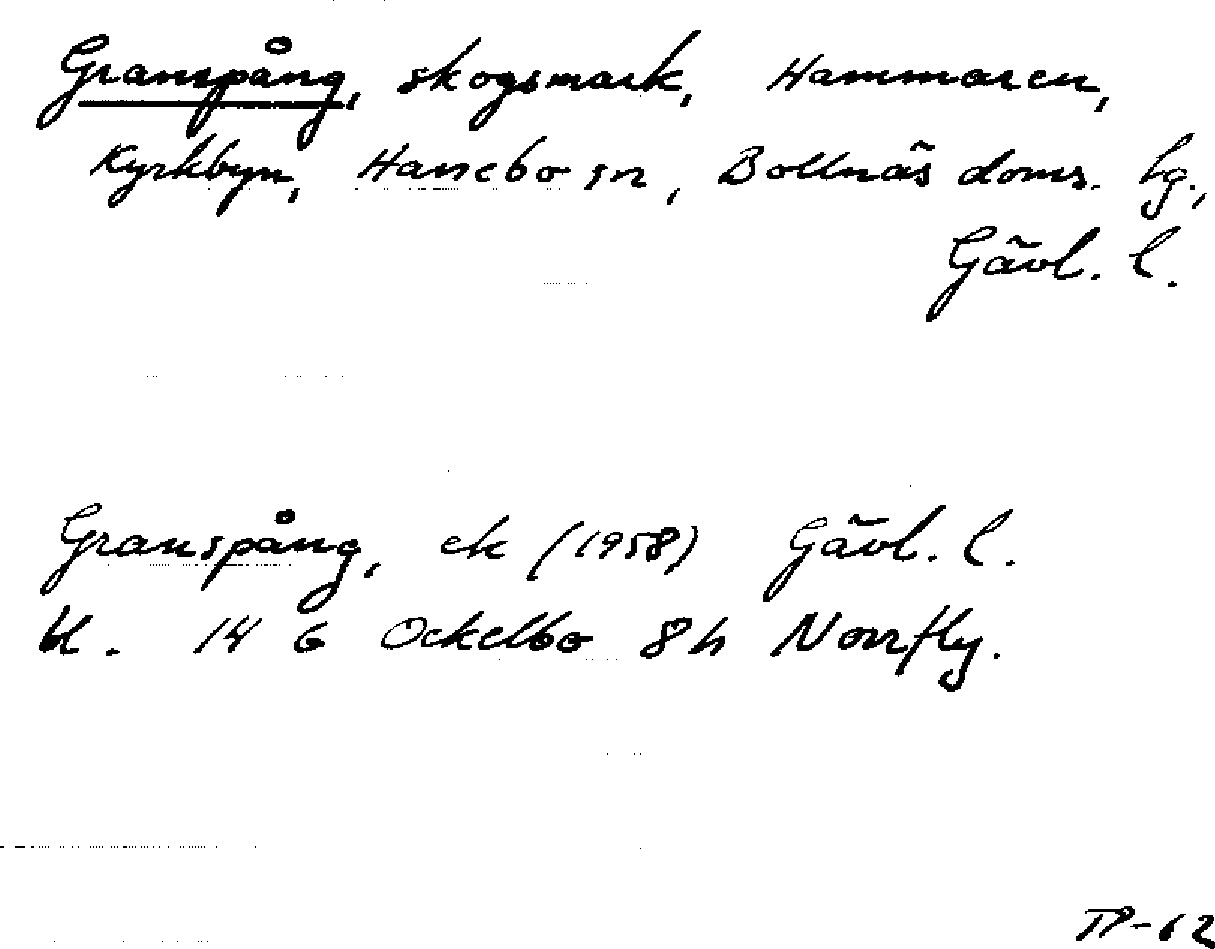 Granspång, skogsmark, Hammaren,
Kyrkbyn, Hanebo sn, Bollnäs doms. hg.,
Gävl. l.
Granspång, ek (1958) Gävl. l.
bl. 14 G Ockelbo 8 h Norrfly.
TP-62